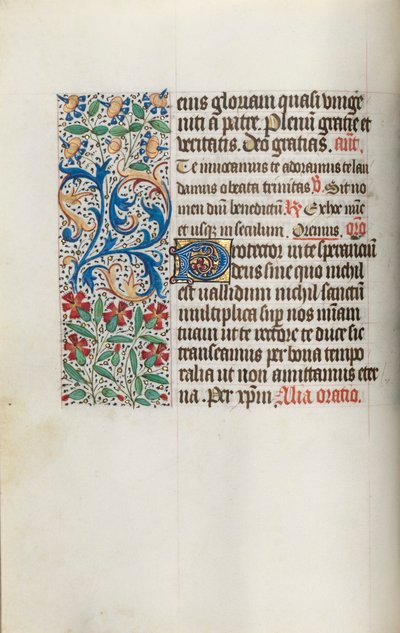 eius gloriam quasi vnige
niti a patre. Plenum gratie et
veritatis. Deo gratias. añt.
Te inuocamus te adoramus te lau
damus o beata trinitas. ℣. Sit no
men dñi benedictū. ℟. Ex hoc nūc
et usq; in seculum. Oremus. oro
Protector in te speranciū
deus sine quo nichil
est vallidum nichil sanctū
multiplica sup̱ nos miām
tuam ut te rectore te duce sic
transeamus per bona tempo
ralia ut non amittamus eter
na. Per xp̄m Alia oratio.